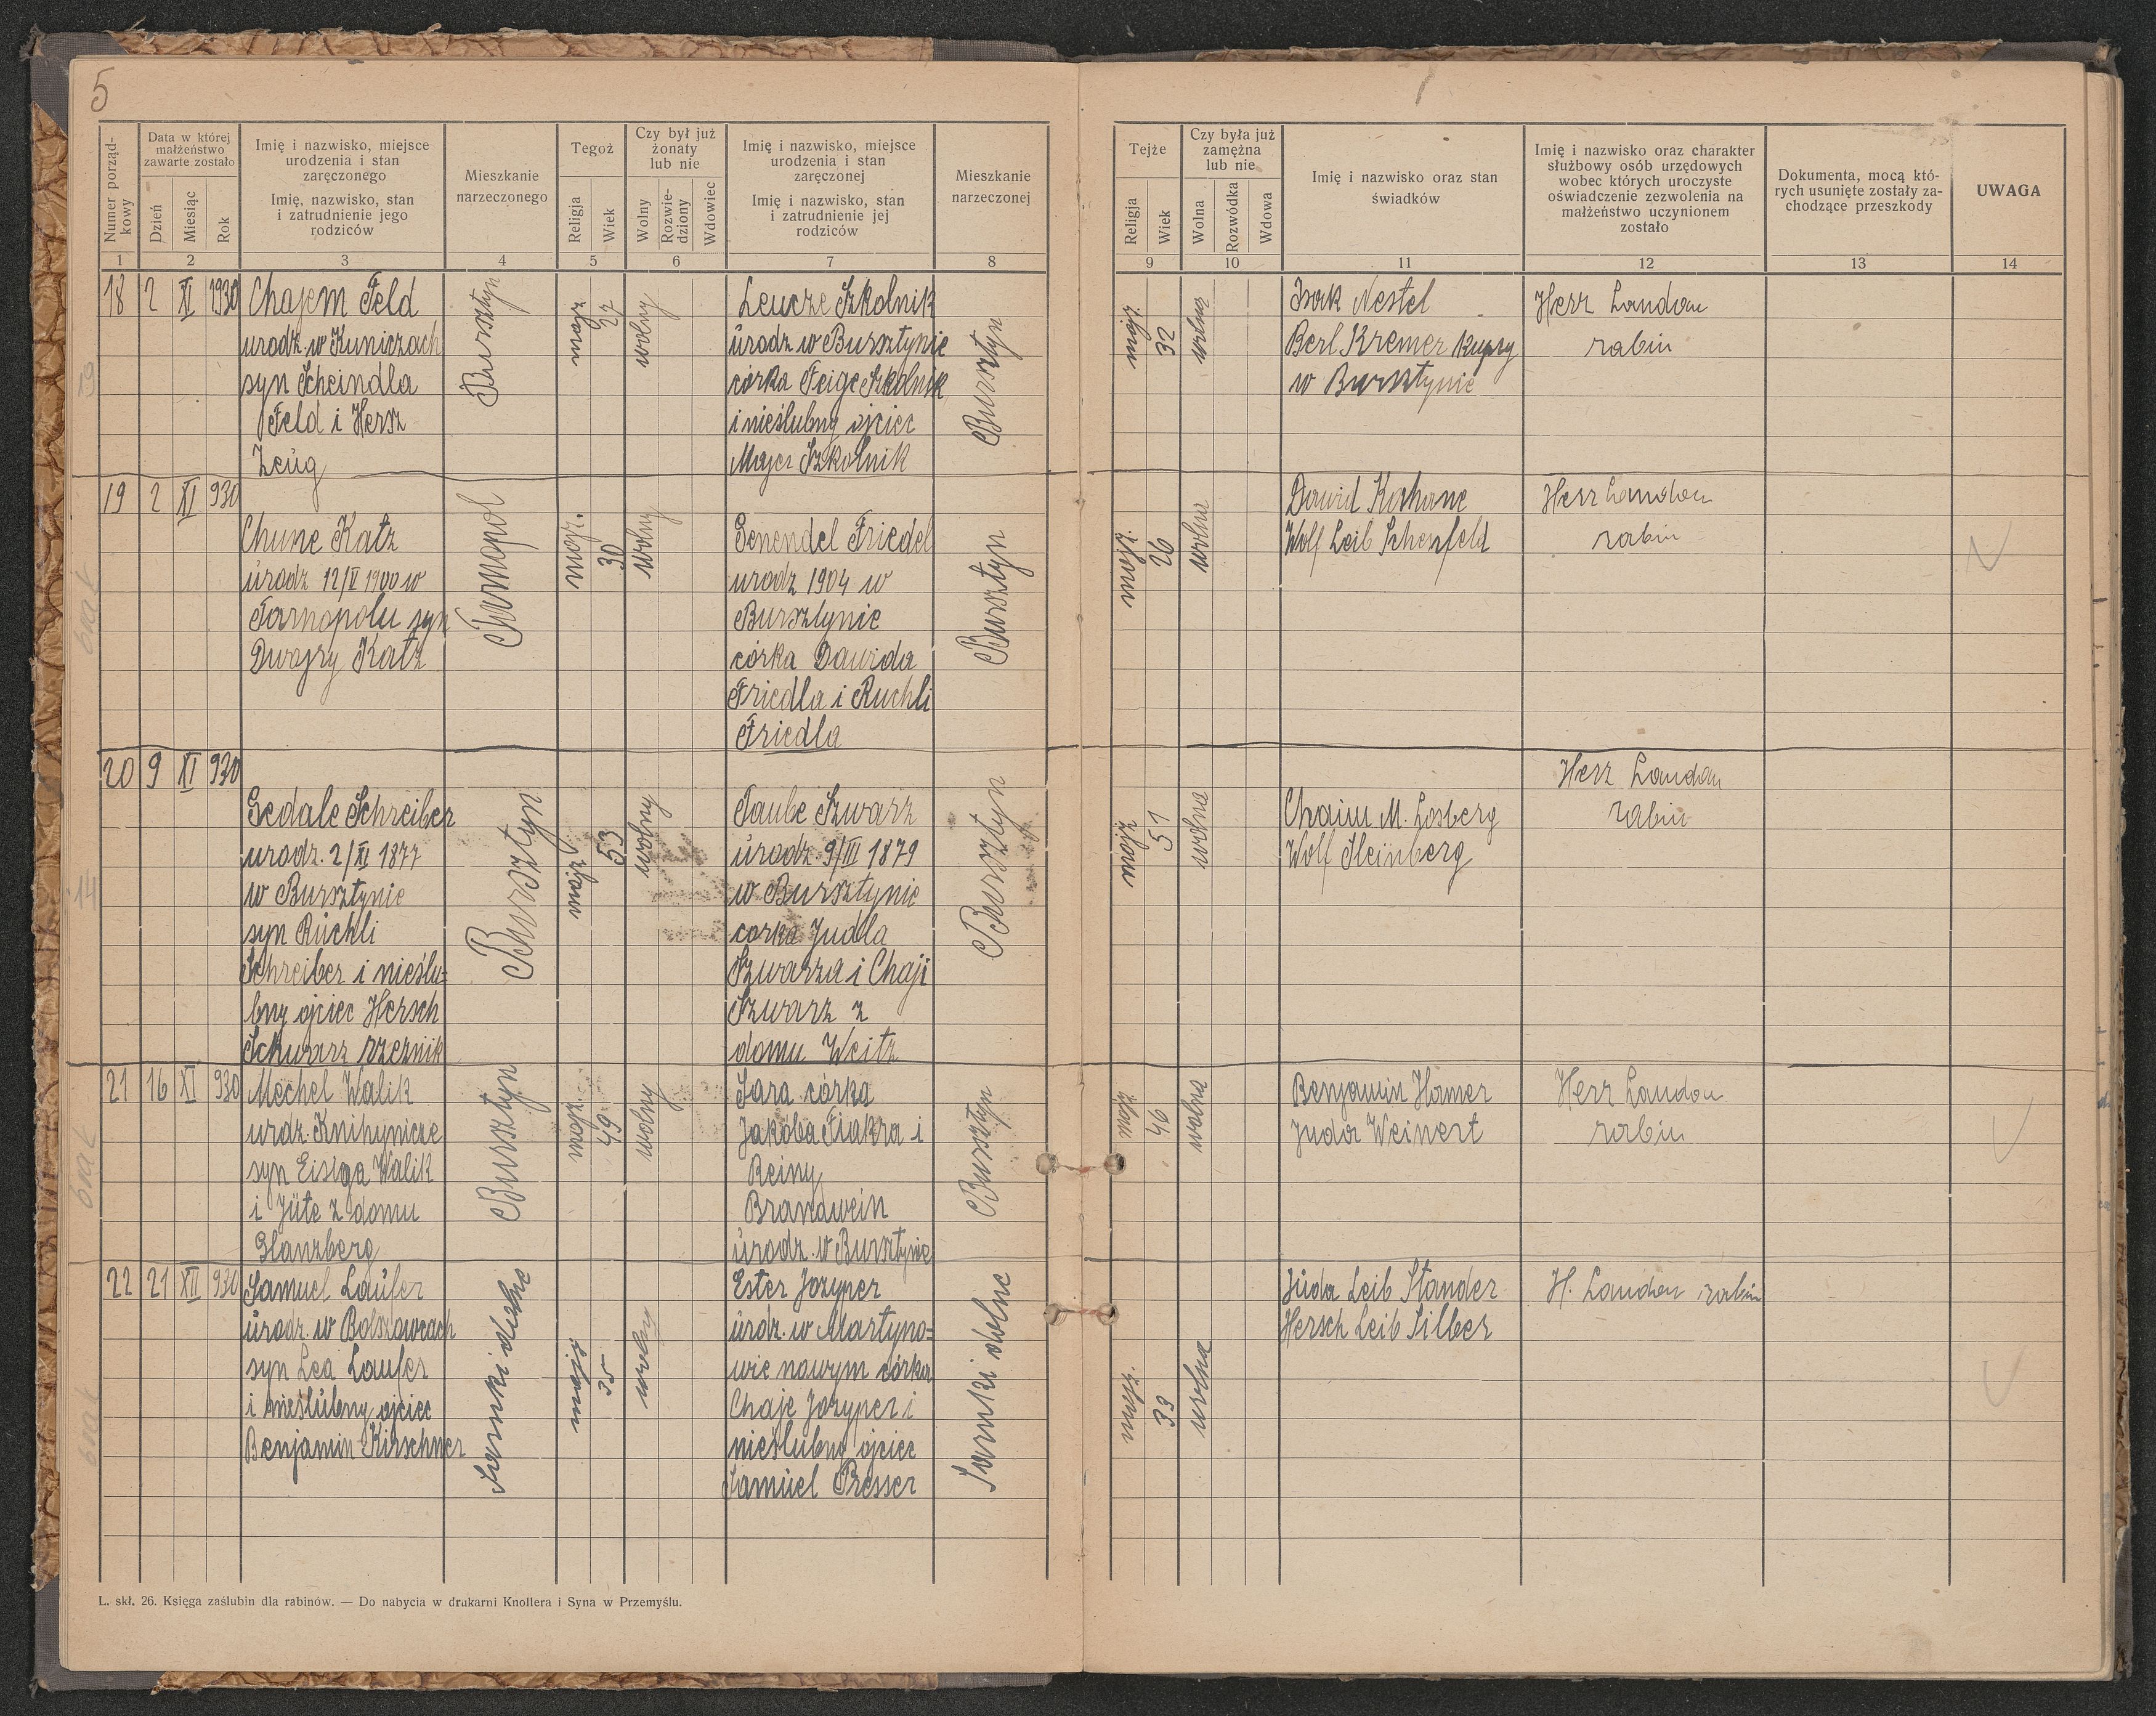 5
Numer porząd-
kowy
Data w której
małżeństwo
zawarte zostało
Dzień
Miesiąc
Rok
Imię i nazwisko, miejsce
urodzenia i stan
zaręczonego
Imię, nazwisko, stan
i zatrudnienie jego
rodziców
Mieszkanie
narzeczonego
Tegoż
Religja
Wiek
Czy był już
żonaty
lub nie
Wolny
Rozwie-
dziony
Wdowiec
Imię i nazwisko, miejsce
urodzenia i stan
zaręczonej
Imię i nazwisko, stan
i zatrudnienie jej
rodziców
Mieszkanie
narzeczonej
Tejże
Religja
Wiek
Czy była już
zamężna
lub nie
Wolna
Rozwódka
Wdowa
Imię i nazwisko oraz stan
świadków
Imię i nazwisko oraz charakter
służbowy osób urzędowych
wobec których uroczyste
oświadczenie zezwolenia na
małżeństwo uczynionem
zostało
Dokumenta, mocą któ-
rych usunięte zostały za-
chodzące przeszkody
UWAGA
1 2 3 4 5 6 7 8 9 10 11 12 13 14
18 2 XI 1930
Chajem Feld
urodz. w Kuniczach
syn Scheindla
Feld i Hersz
Zeug
Bursztyn
mojż.
27
wolny
Leucze Szkolnik
urodz w Bursztynie
córka Feige Szkolnik
i nieślubny ojciec
Majer Szkolnik
Bursztyn
mojż.
32
wolna
Isak Nestel
Berl Kremer kupcy
w Bursztynie
Herr Landau
rabin
19 2 XI 930
Chune Katz
urodz 12/V 1900 w
Tarnopolu syn
Dwojry Katz
Tarnopol
mojż.
30
wolny
Genendel Friedel
urodz 1904 w
Bursztynie
córka Dawida
Friedla i Ruchli
Friedla
Bursztyn
mojż.
26
wolna
Dawid Kahane
Wolf Leib Schenfeld
Herr Landau
rabin
20 9 XI 930
Gedale Schreiber
urodz. 2/XI 1877
w Bursztynie
syn Ruchli
Schreiber i nieślu-
bny ojciec Hersch
Schwarz rzeźnik
Bursztyn
mojż
53
wolny
Taube Szwarz
urodz. 9/III 1879
w Bursztynie
corka Judla
Szwarza i Chaji
Szwarz z
domu Weitz
Bursztyn
mojż
51
wolna
Chaim M. Losberg
Wolf Steinberg
Herr Landau
rabin
21 16 XI 930
Mechel Walik
urdz. Knihynicze
syn Eisiga Walik
i Jüte z domu
Glanzberg
Bursztyn
mojż.
49
wolny
Sara córka
Jakóba Fiakra i
Reiny
Brandwein
urodz. w Bursztynie
Bursztyn
mojż
46
wolna
Benjamin Hamer
Juda Weinert
Herr Landau
rabin
22 21 XII 930
Samuel Laufer
urodz. w Bolszowcach
syn Lea Laufer
i nieślubny ojciec
Benjamin Kirschner
Sarnki dolne
mojż.
35
wolny
Ester Jozyper
urdz. w Martyno-
wie nowym córka
Chaje Jozyper i
nieślubny ojciec
Samuel Presser
Sarnki dolne
mojż.
33
wolna
Juda Leib Stander
Hersch Leib Silber
H. Landau rabin
L. skł. 26. Księga zaślubin dla rabinów. — Do nabycia w drukarni Knollera i Syna w Przemyślu.